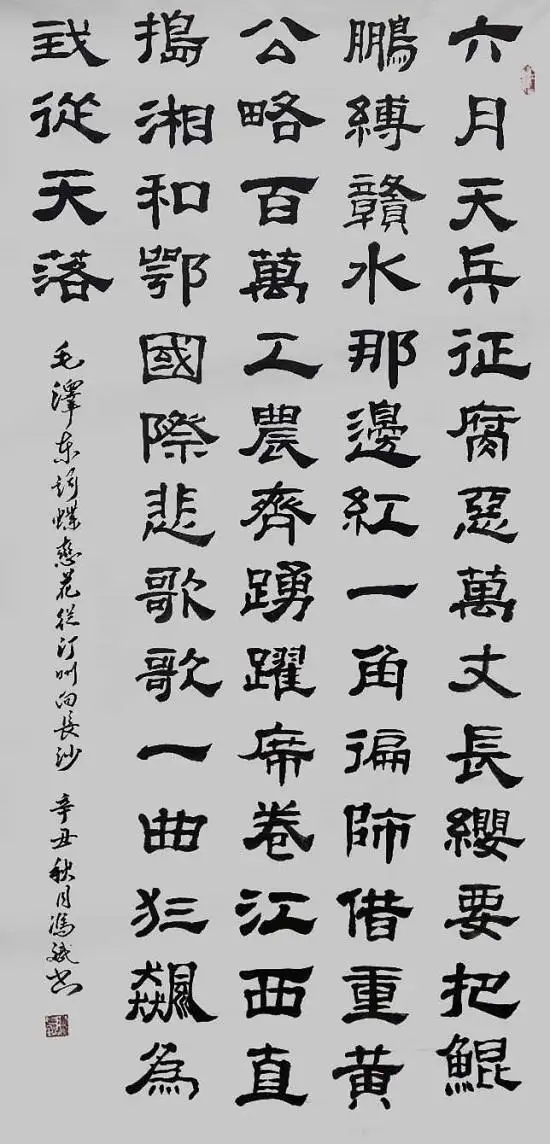 六月天兵征腐惡萬丈長纓要把鯤
鵬縛贛水那邊紅一角徧師借重黃
公略百萬工農齊踴躍席卷江西直
搗湘和鄂國際悲歌歌一曲狂飆為
我從天落
毛澤东詞蝶恋花從汀州向長沙 辛丑秋月馮斌書